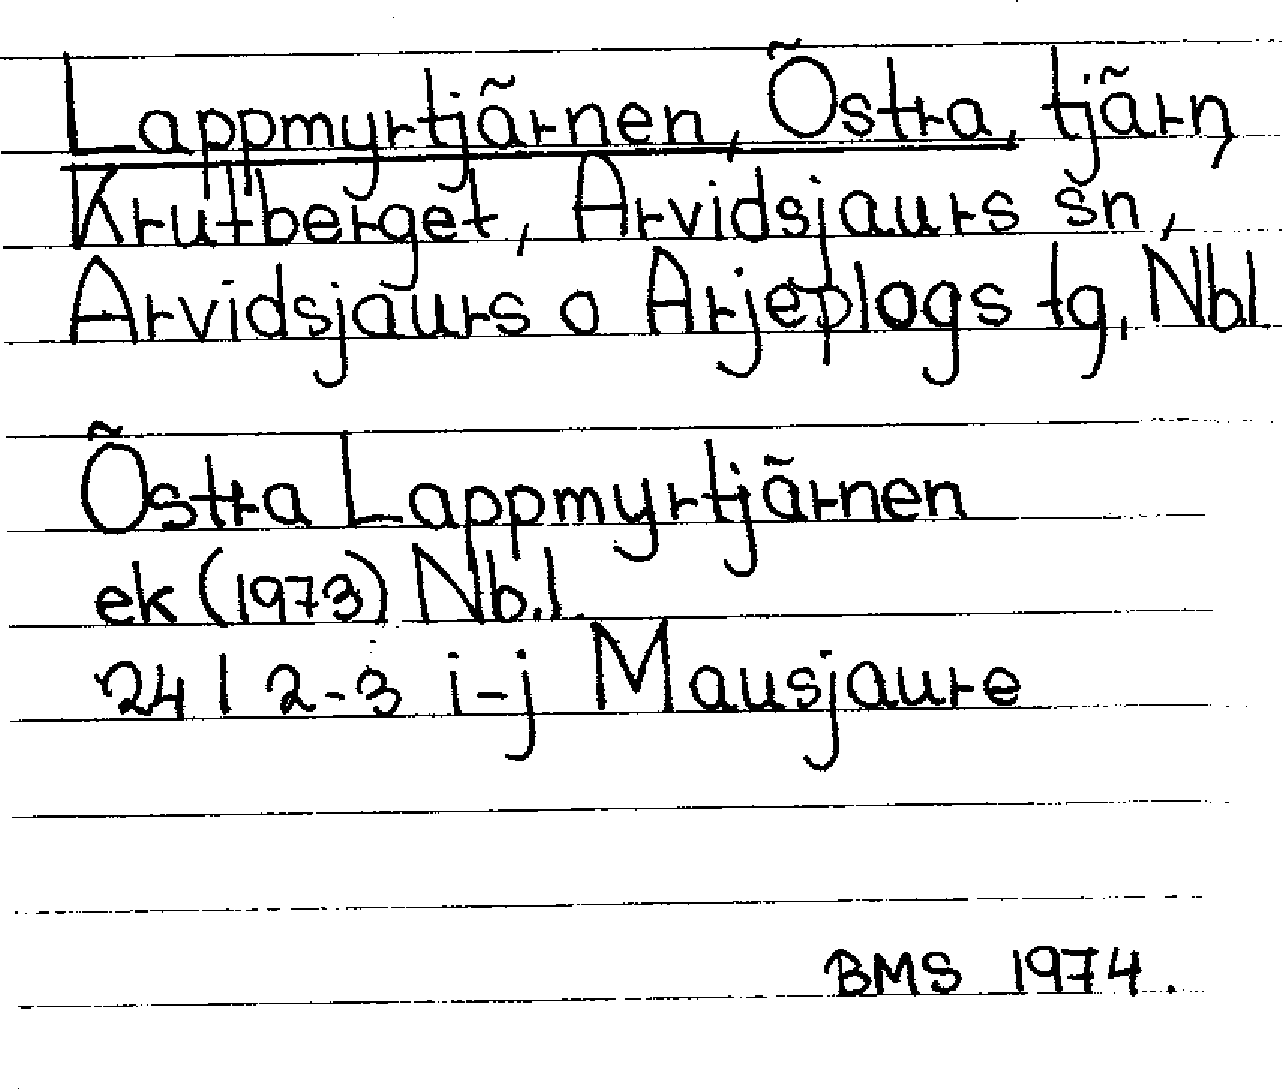 Lappmyrtjärnen, Östra, tjärn,
Krutberget, Arvidsjaurs sn,
Arvidsjaurs o Arjeplogs tg, Nb.l
Östra Lappmyrtjärnen
ek (1973) Nb.l.
24 I 2-3 i-j Mausjaure
BMS 1974.